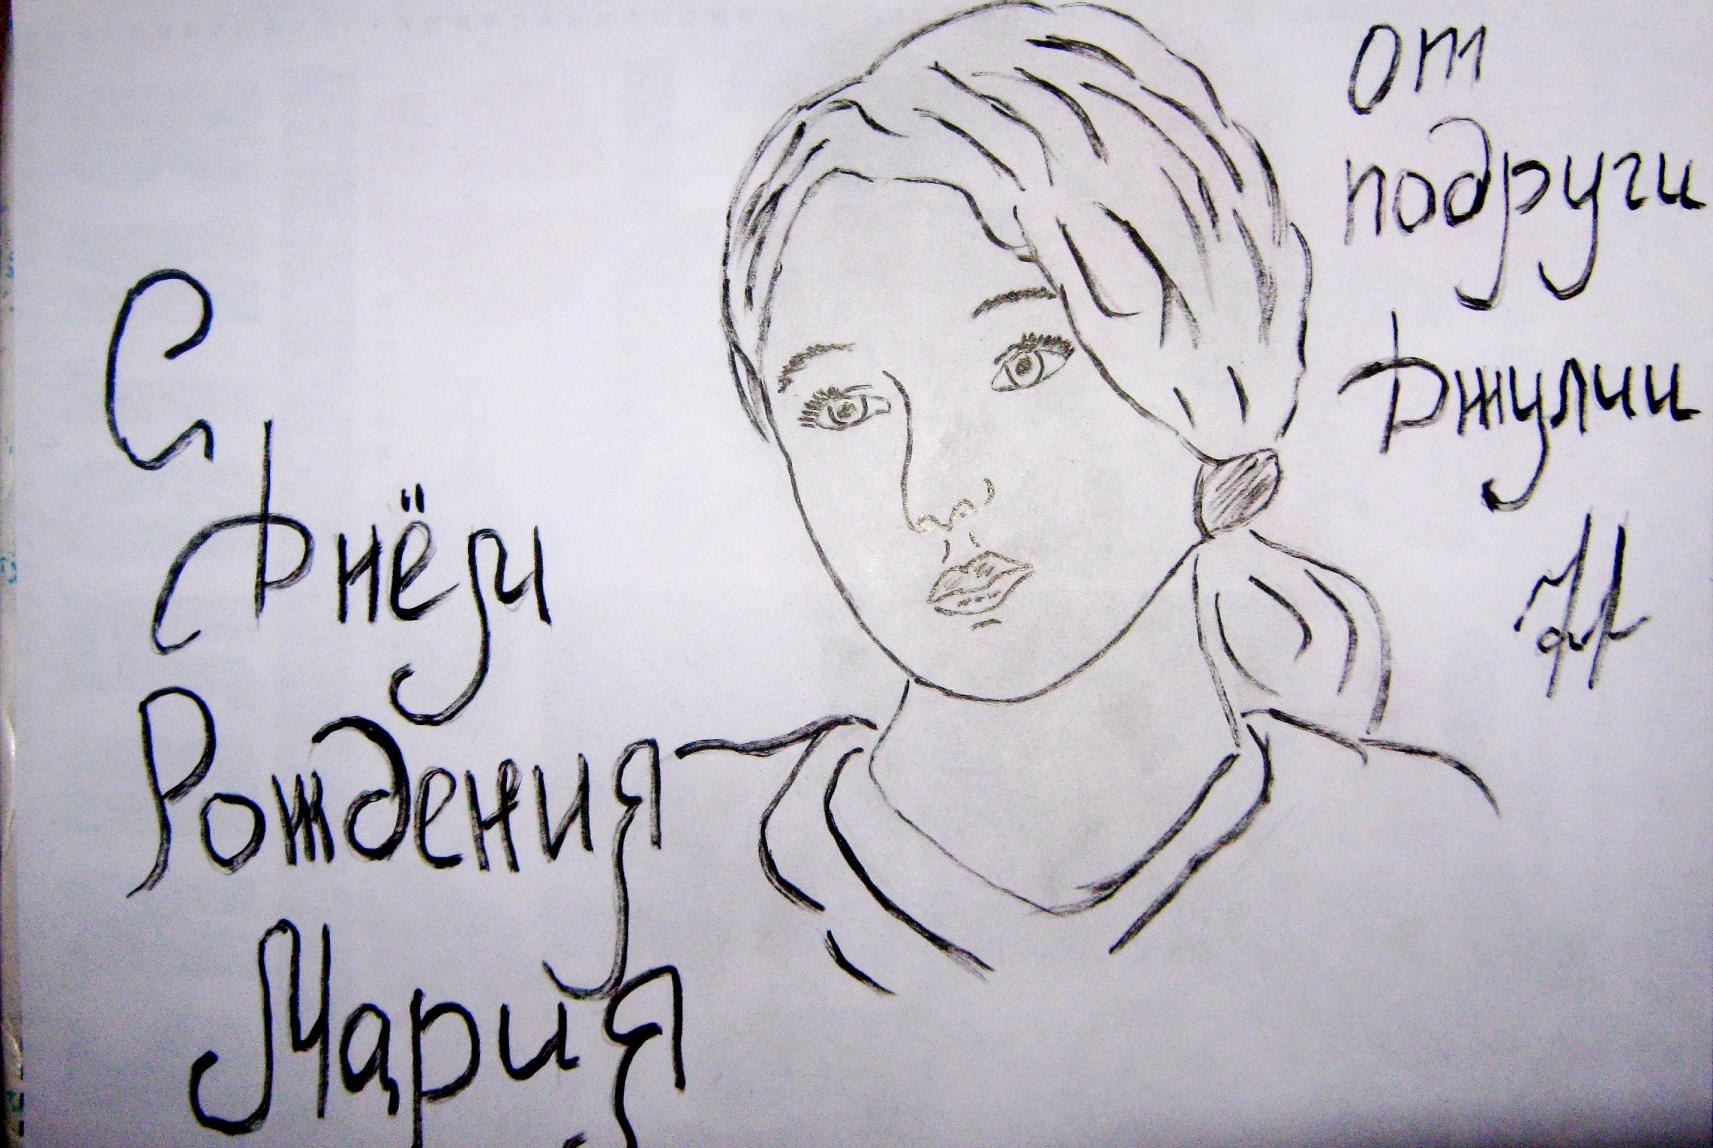 С
Днём
Рождения
Мария
от
подруги
Джулии